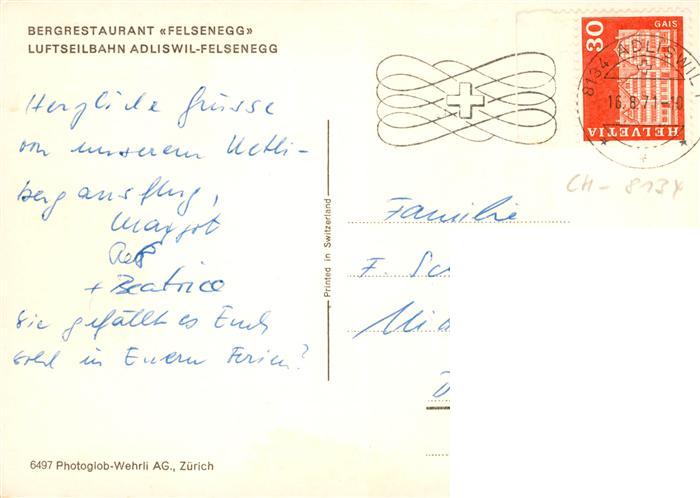 BERGRESTAURANT «FELSENEGG»
LUFTSEILBAHN ADLISWIL-FELSENEGG
Herzliche Grüsse
von unserem Uetli-
bergausflug,
Margot
+ Beatrice
Wie gefällt es Euch
wohl in Euern Ferien?
6497 Photoglob-Wehrli AG., Zürich
Printed in Switzerland
30
GAIS
HELVETIA
8134 ADLISWIL 1
16.8.71-10
CH-8134
Familie
F. Sc